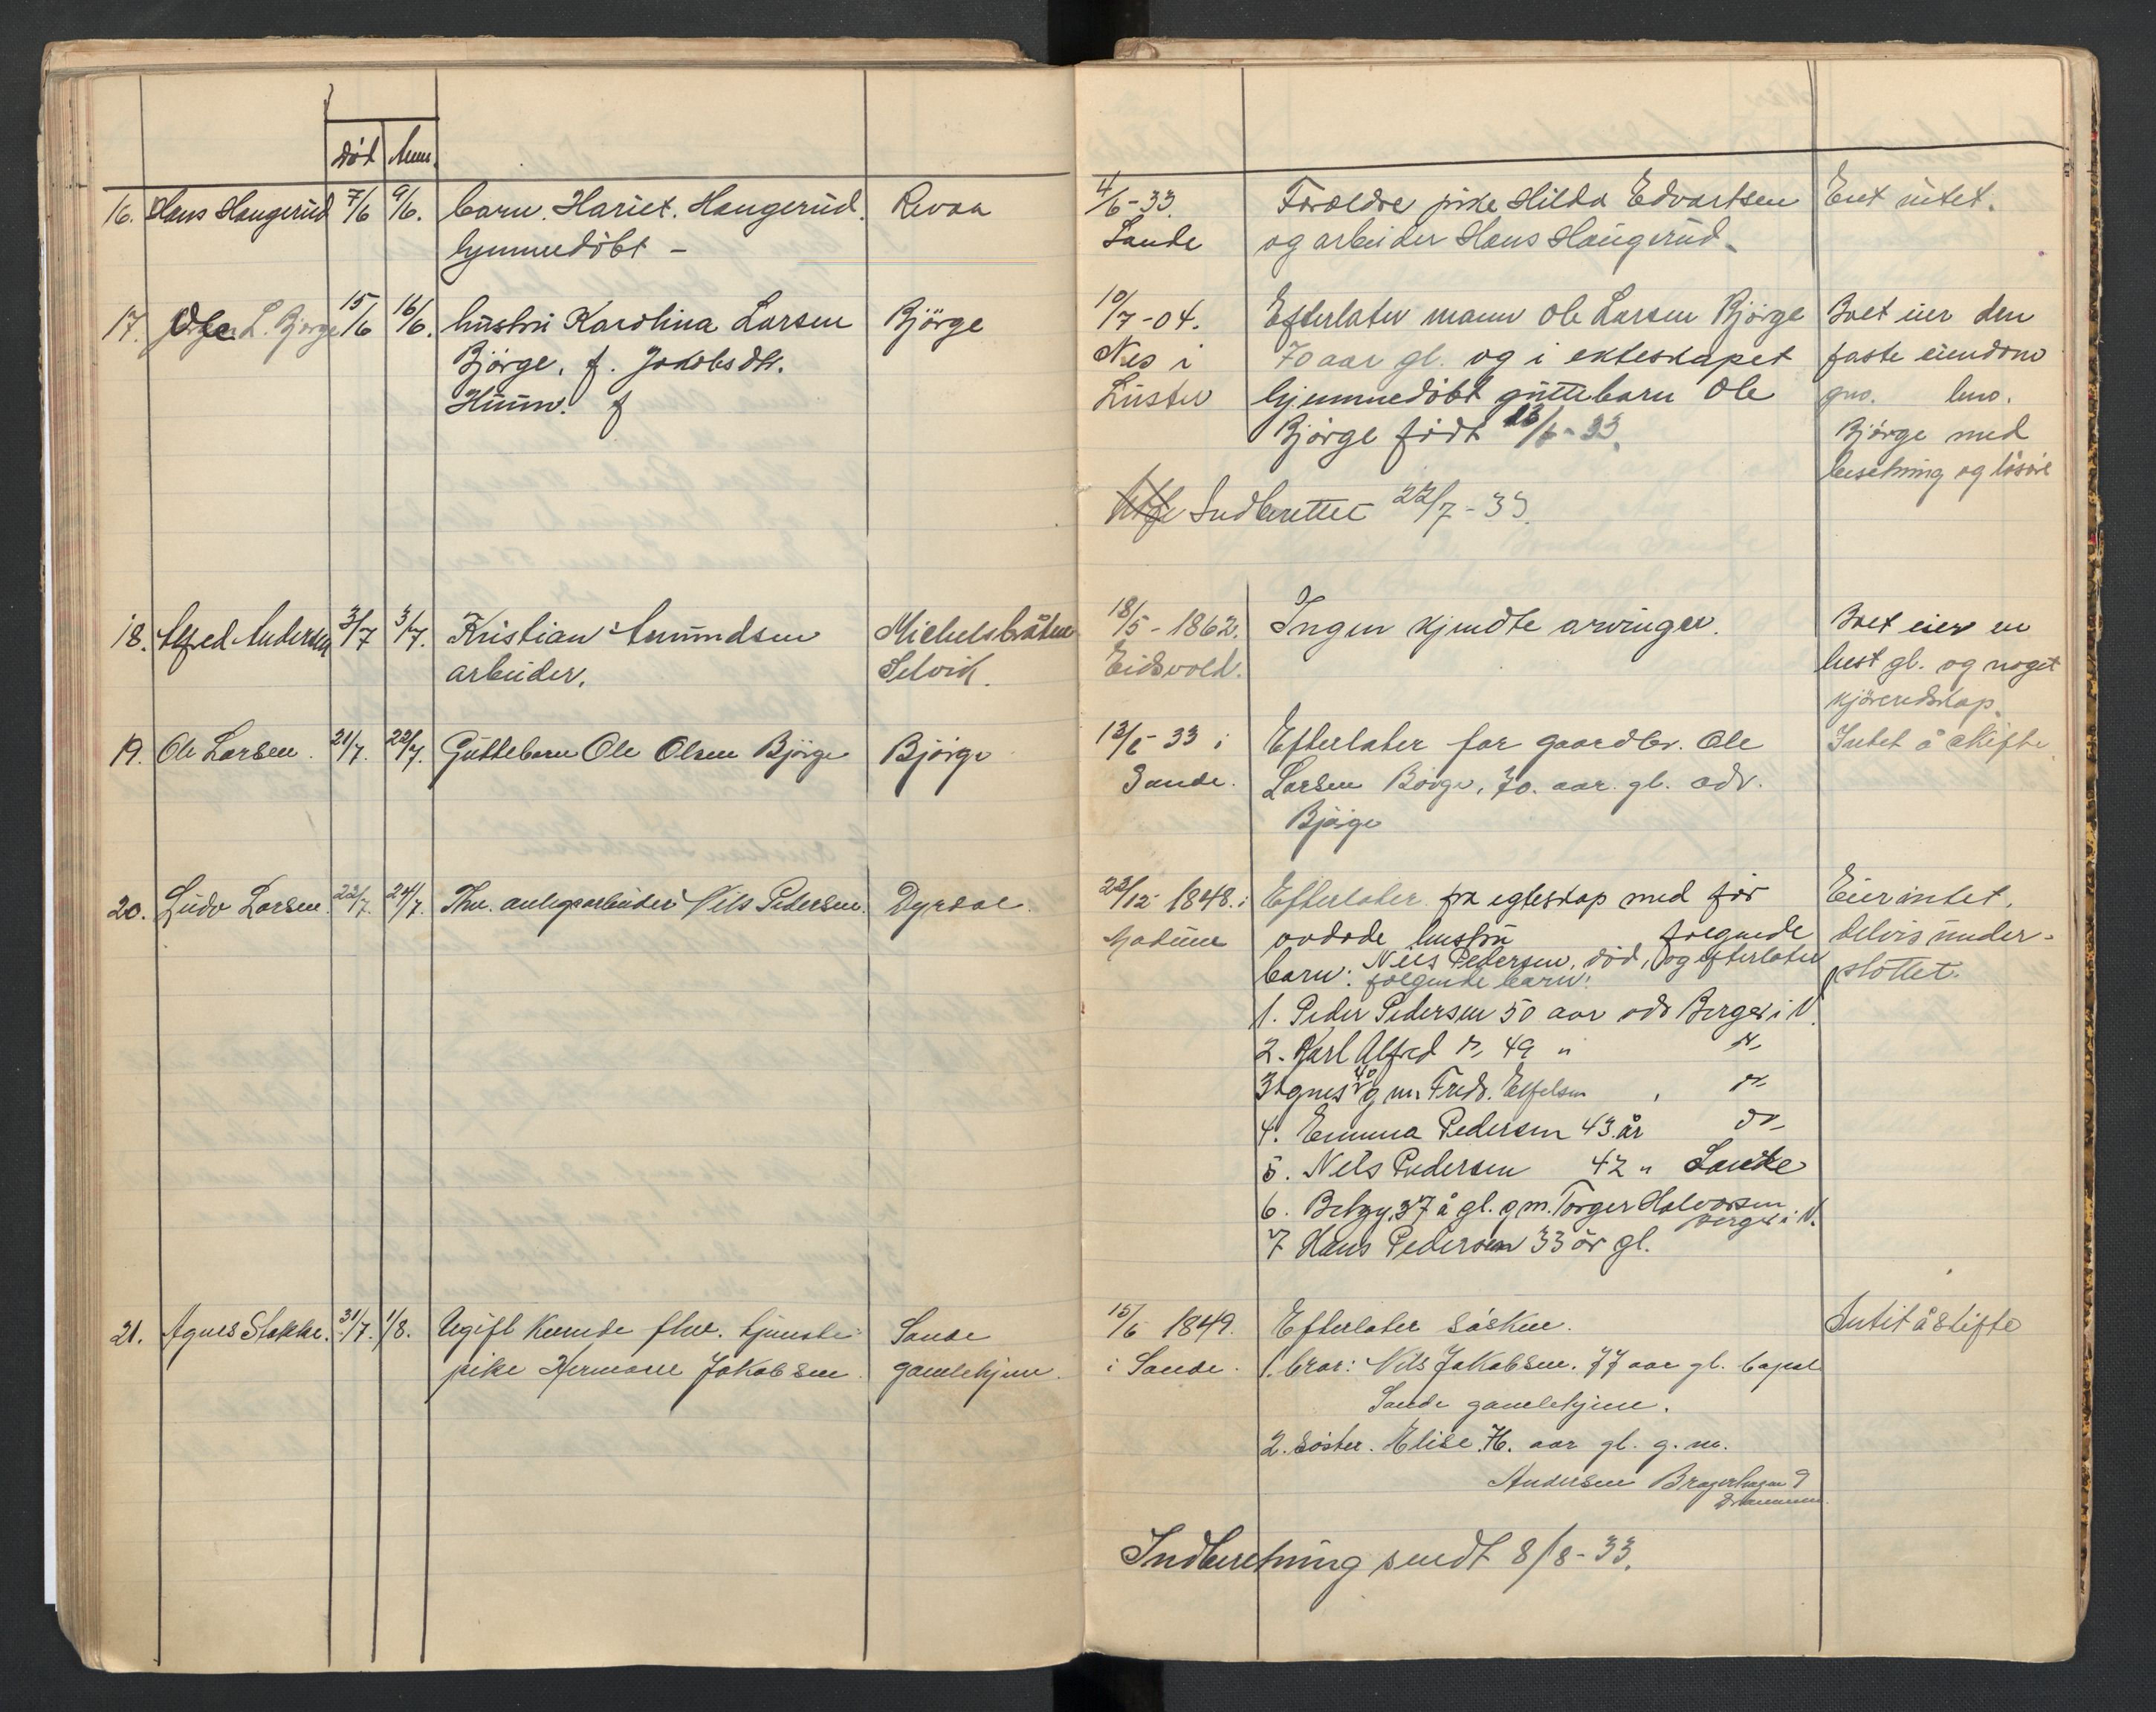 død Anm.
16. Hans Haugerud 7/6 9/6. barn. Hariet. Haugerud. Revaa
hjemmedöbt -
17. Ole L. Bjørge 15/6 16/6. hustru Karolina Larsen Björge
Björge, f. Jakobsdtr.
Huun. f
18. Alfred Andersen 3/7 3/7. Kristian Amundsen Michelsbråten
arbeider. Selvik.
19. Ole Larsen. 21/7. 22/7. Guttebarn Ole Olsen Björge Björge
20. Ludv Larsen. 22/7. 24/7. Fhv. anlegsarbeider Nils Pedersen. Dyrdal.
21. Agnes Stokke. 31/7. 1/8. Ugift Kvinde fhv. tjeneste- Sande
pike Hermane Jakobsen. gamlehjem.
4/6-33. Foreldre pike Hilda Edvartsen Eiet intet.
Sande og arbeider Hans Haugerud.
10/7-04. Efterlater mann Ole Larsen Björge Boet eier den
Nes i 70 aar gl. og i ekteskapet faste eiendom
Luster hjemmedöbt guttebarn Ole gno. bno.
Björge född 13/6-33. Björge med
besetning og lösöre
Indberettet 22/7-33.
18/5-1862. Ingen kjendte arvinger. Boet eier en
Eidsvold. hest gl. og noget
kjöreredskap.
13/6 33 i Efterlater far gaardbr. Ole Intet å skifte
Sande. Larsen Börge, 70. aar. gl. adr.
Björge
23/12 1848. i Efterlater fra egteskap med för Eier intet.
Modum avdøde hustru følgende delvis under-
barn: Nils Pedersen, död, og efterlater støttet.
følgende barn:
1. Peder Pedersen 50 aar adr Berger i V.
2. Karl Alfred " 49 " "
3 Agnes 40 g m. Fredr. do
4. Emma Pedersen 43 år do
5. Nils Pedersen 42 " Sande
6. Betzy, 37 å gl. g m. Torger Halvorsen
Berger i V.
7 Hans Pedersen 33 år gl.
15/6 1849. Efterlater søsken. Intet å skifte
i Sande. 1. bror: Nils Jakobsen. 77 aar gl. bopæl
Sande gamlehjem.
2. søster. Elise 76. aar gl. g. m.
Andersen Bragerhagen 9
Drammen.
Indberetning sendt 8/8-33.